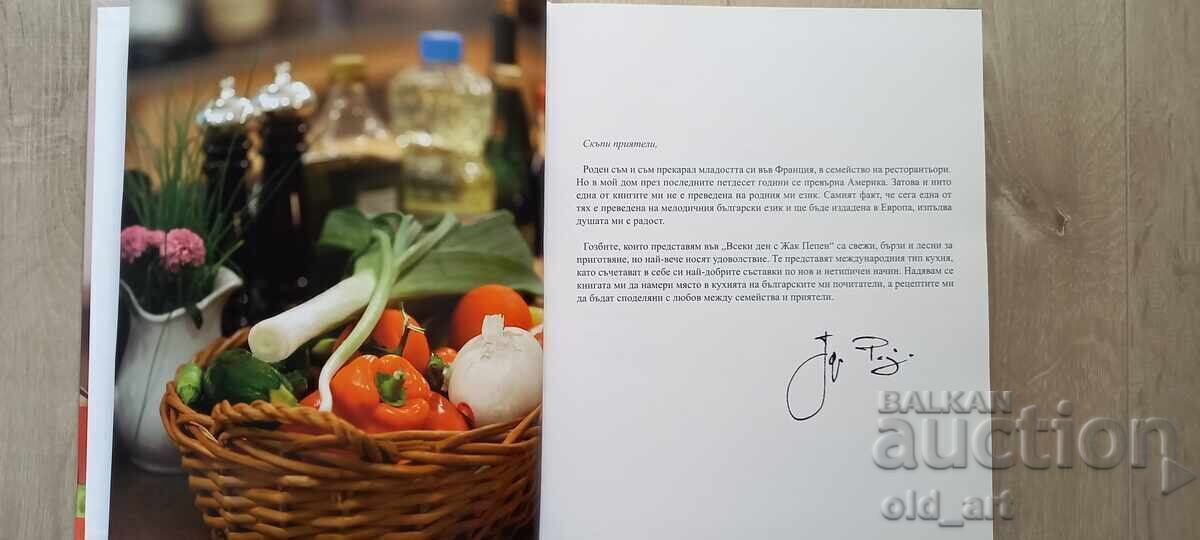 Скъпи приятели,
Роден съм и съм прекарал младостта си във Франция, в семейство на ресторантьори.
Но в мой дом през последните петдесет години се превърна Америка. Затова и нито
една от книгите ми не е преведена на родния ми език. Самият факт, че сега една от
тях е преведена на мелодичния български език и ще бъде издадена в Европа, изпълва
душата ми с радост.
Гозбите, които представям във „Всеки ден с Жак Пепен“ са свежи, бързи и лесни за
приготвяне, но най-вече носят удоволствие. Те представят международния тип кухня,
като съчетават в себе си най-добрите съставки по нов и нетипичен начин. Надявам се
книгата ми да намери място в кухнята на българските ми почитатели, а рецептите ми
да бъдат споделяни с любов между семейства и приятели.
BALKAN
auction
old_art